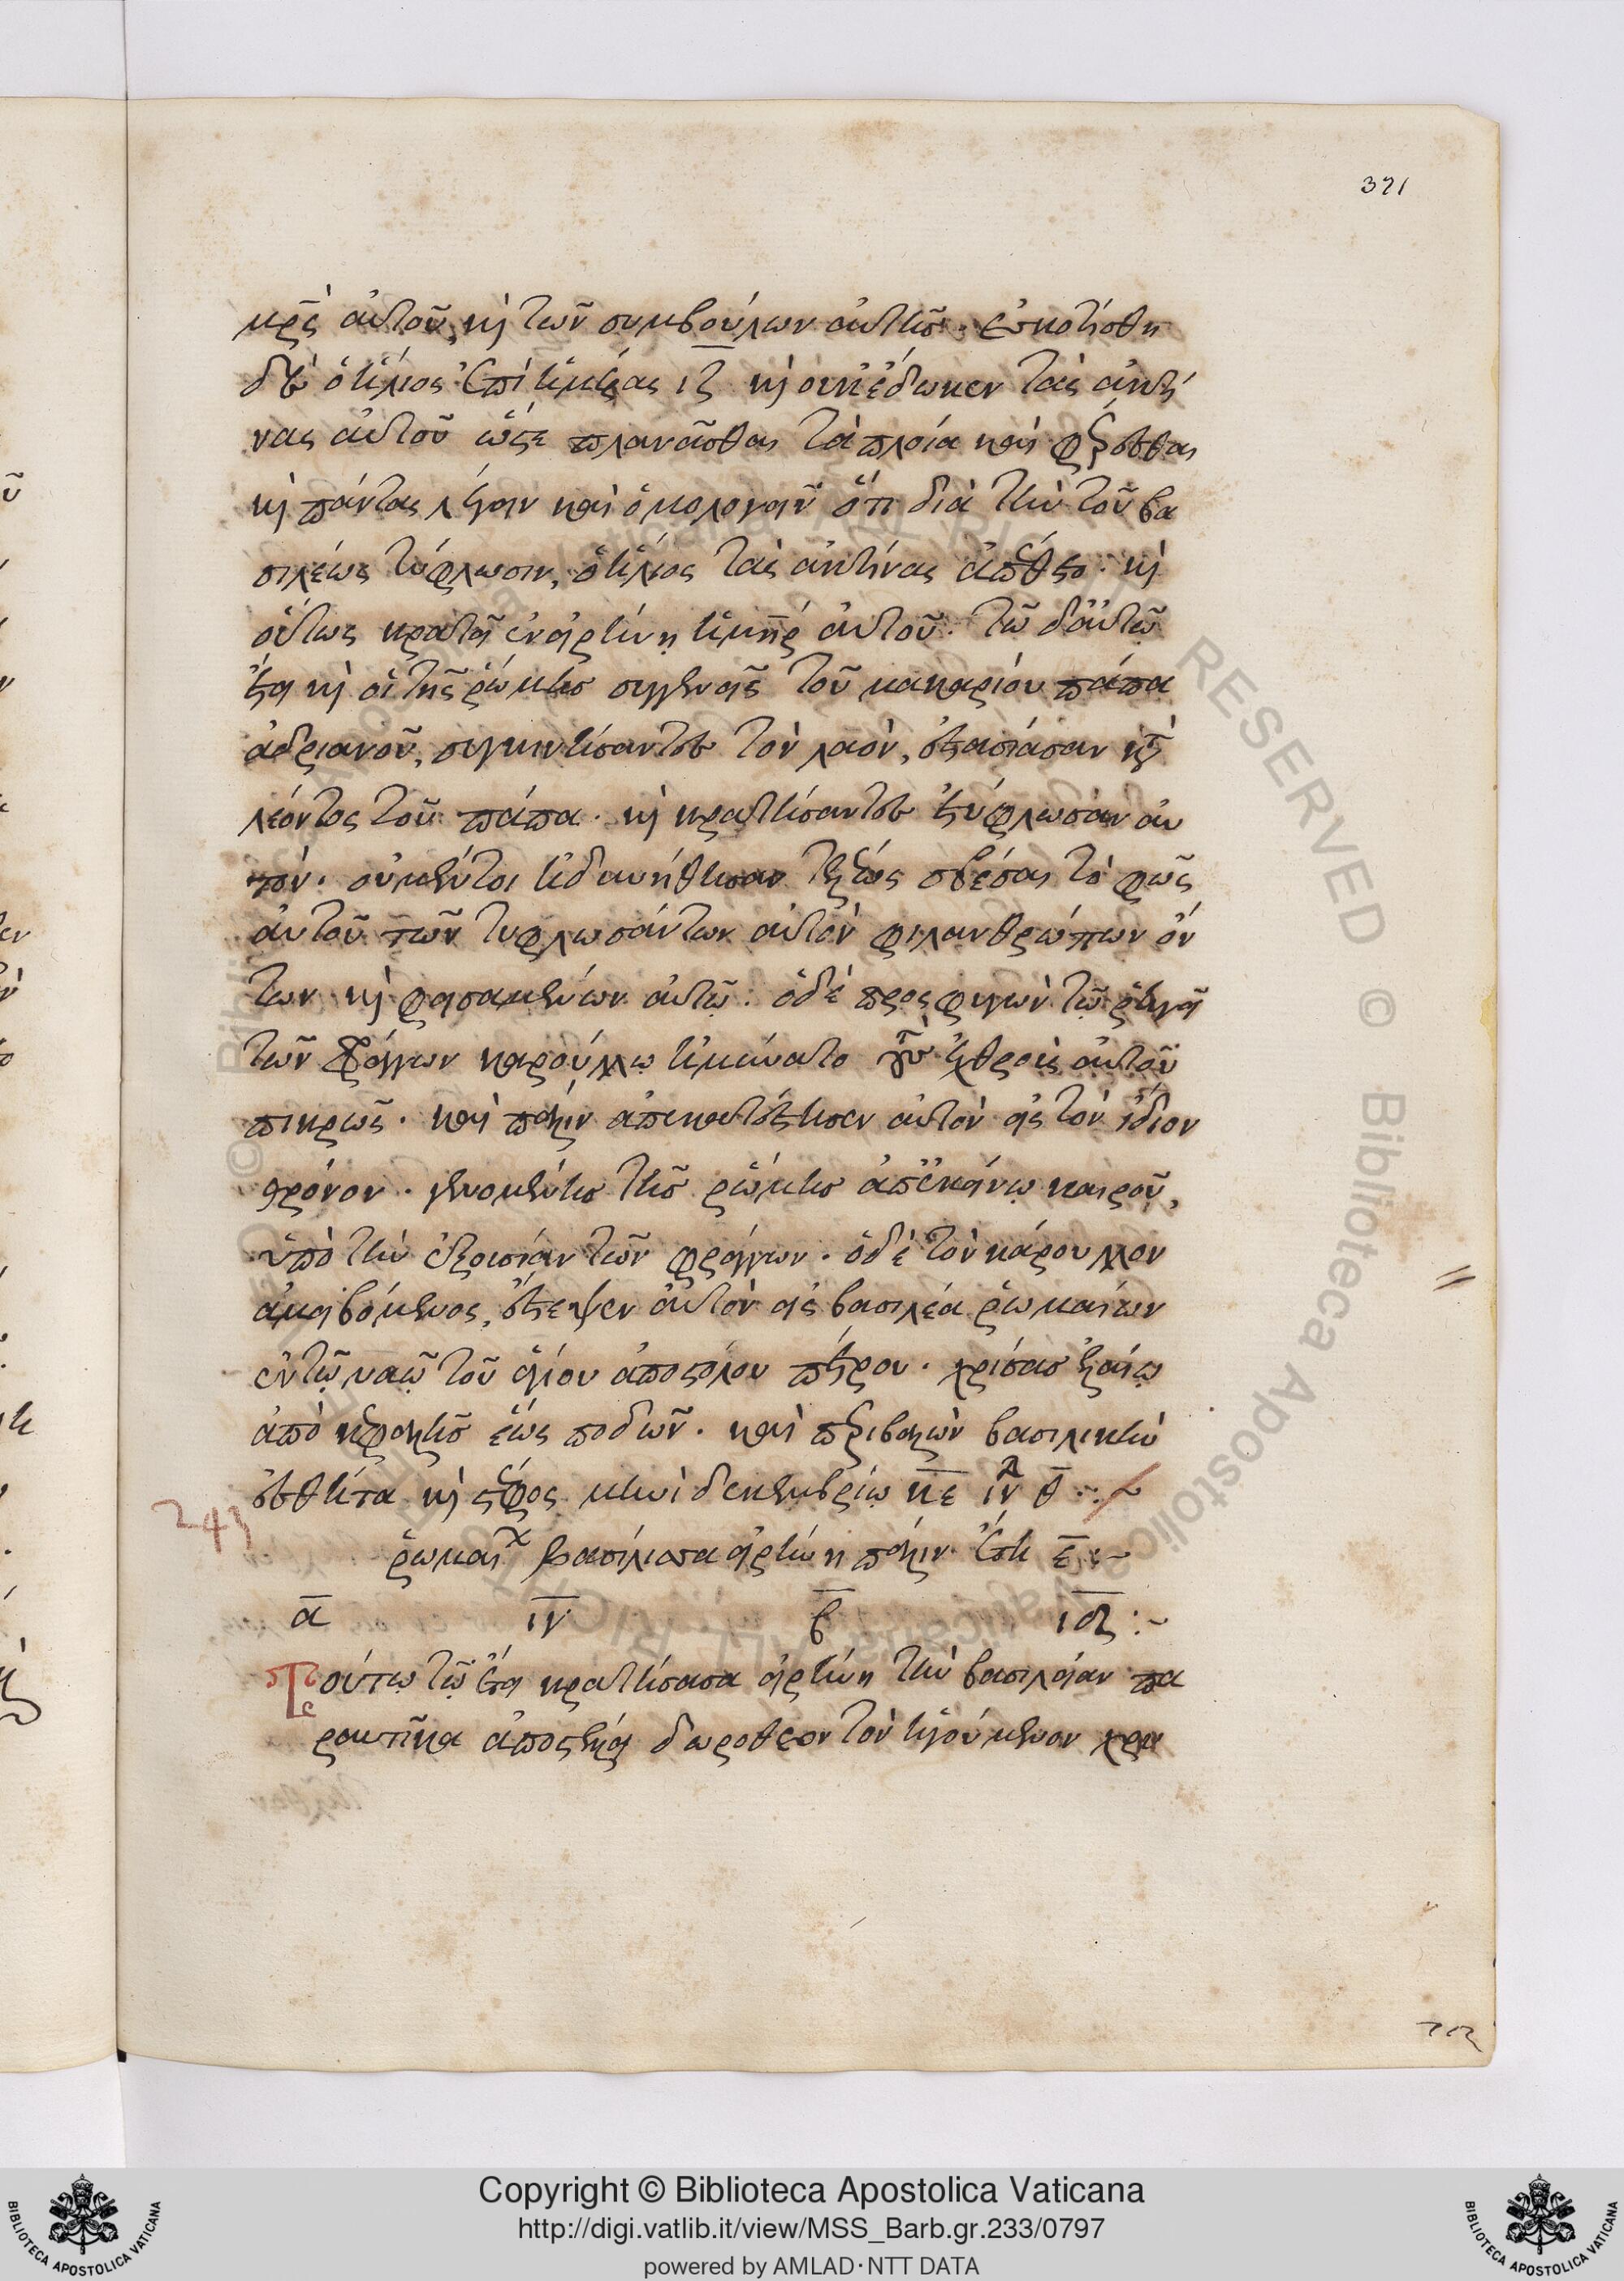 371
μρ̅ς αὐτοῦ, κὶ τῶν συμβούλων αὐτῆσ. ἐσκοτίσθη
δὲ ὁ ἥλιος ἐπὶ ἡμέρας ιζ κὶ οὐκ ἔδωκεν τὰς ἀκτί
νας αὐτοῦ ὥστε πλανᾶσθαι τὰ πλοῖα καὶ φέρεσθαι
κὶ πάντας λέγειν καὶ ὁμολογεῖν ὅτι διὰ τὴν τοῦ βα
σιλέως τύφλωσιν, ὁ ἥλιος τὰς ἀκτίνας ἀπέθετο. κὶ
οὕτως κρατεῖ εἰρήνη ἡ μη̅ρ αὐτοῦ. τῶ δ' αὐτῶ
ἔτει κὶ οἱ τῆς ῥώμησ συγγενεῖς τοῦ μακαρίου πάπα
ἀδριανοῦ, συγκινήσαντες τὸν λαὸν, ἐστασίασαν κτ̀
λέοντος τοῦ πάπα. κὶ κρατήσαντες ἐτύφλωσαν αὐ
τόν. οὐ μέντοι ἠδυνήθησαν τελείως σβέσαι τὸ φῶς
αὐτοῦ τῶν τυφλωσάντων αὐτὸν φιλανθρώπων ὄν
των κὶ φεισαμένων αὐτῶ. ὁ δὲ προσφυγὼν τῶ ῥηγὶ
τῶν φράγγων καρούλλω ἠμύνατο τοὺς ἐχθροὺς αὐτοῦ
πικρῶς. καὶ πάλιν ἀπεκατέστησεν αὐτὸν εἰς τὸν ἴδιον
θρόνον. γενομένησ τῆσ ῥώμησ ἀπ' ἐκείνω καιροῦ,
ὑπὸ τὴν ἐξουσίαν τῶν φράγγων. ὁ δὲ τὸν κάρουλλον
ἀμειβόμενος, ἔστεψεν αὐτὸν εἰς βασιλέα ῥωμαίων
ἐν τῶ ναῶ τοῦ ἁγίου ἀποστόλου πέτρου. χρίσασ ἐλαίω
ἀπὸ κεφαλῆσ ἕως ποδῶν. καὶ περιβαλὼν βασιλικὴν
ἐσθῆτα κὶ στέφος μηνὶ δεκεμβρίω κε ἰνδ θ :~
243
ῥωμαίχ βασίλισσα εἰρήνη πάλιν ἔτη ε :~
α ιγ β ιδ :~
Τούτω τῶ ἔτει κρατήσασα εἰρήνη τὴν βασιλείαν πα
ραυτίκα ἀποστέλλει δωρόθεον τὸν ἡγούμενον χρυ
Copyright © Biblioteca Apostolica Vaticana
http://digi.vatlib.it/view/MSS_Barb.gr.233/0797
powered by AMLAD·NTT DATA